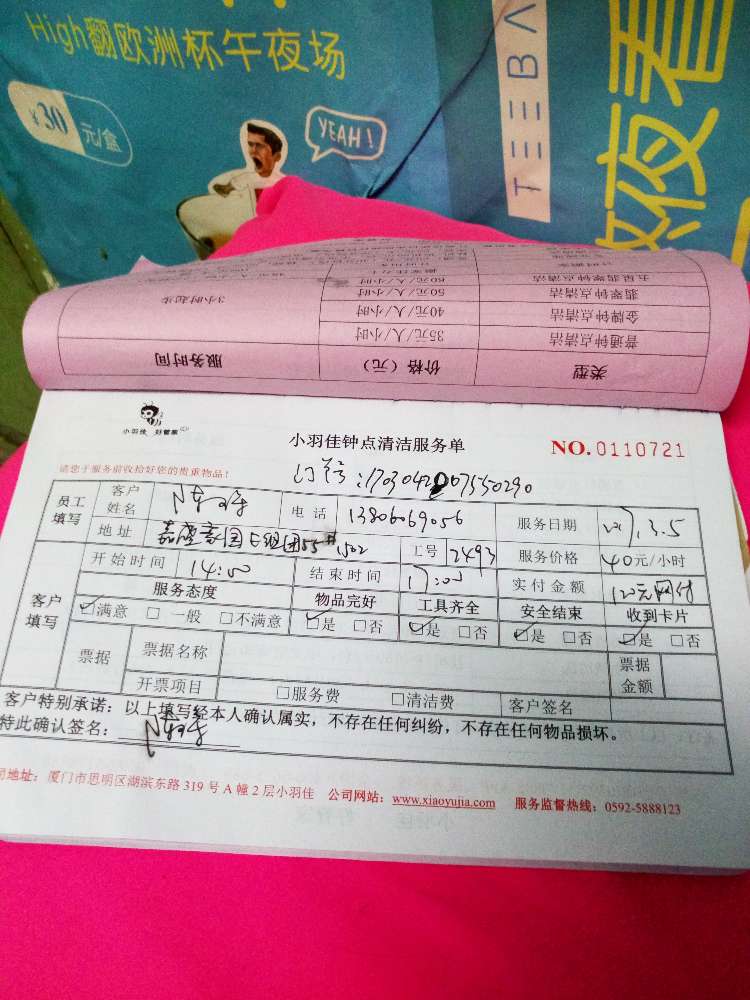 High翻欧洲杯午夜场
¥30元/盒
YEAH!
TEEBA
夜看
类型 价格（元） 服务时间
普通钟点清洁 35元/人/小时
金牌钟点清洁 40元/人/小时 3小时起步
翡翠钟点清洁 50元/人/小时
五星翡翠钟点清洁 60元/人/小时
小羽佳 好管家
小羽佳钟点清洁服务单
NO.0110721
请您于服务前收拾好您的贵重物品！
员工填写 客户姓名 电话 13806069056 服务日期 2017.3.5
地址 嘉盛豪园E组团55#1502 工号 2493 服务价格 40元/小时
客户填写 开始时间 14:00 结束时间 17:00 实付金额 120元网付
服务态度 物品完好 工具齐全 安全结束 收到卡片
☑满意 □一般 □不满意 ☑是 □否 ☑是 □否 ☑是 □否 ☑是 □否
票据 票据名称 票据金额
开票项目 □服务费 □清洁费 客户签名
客户特别承诺：以上填写经本人确认属实，不存在任何纠纷，不存在任何物品损坏。
特此确认签名：
司地址：厦门市思明区湖滨东路319号A幢2层小羽佳 公司网站：www.xiaoyujia.com 服务监督热线：0592-5888123